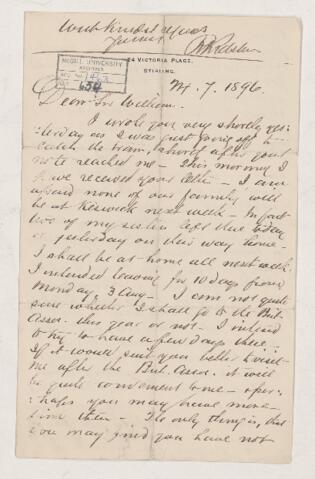 With kindest regards
Yours
McGILL UNIVERSITY
ARCHIVES
ACC. NO.
REF.
24 VICTORIA PLACE,
STIRLING.
24. 7. 1896.
Dear Sir William.
I wrote you very shortly yes-
-terday as I was just going off to
catch the train, shortly after your
note reached me - This morning I
have received your letter - I am
afraid none of our family will
be at Keswick next week - In fact
two of my sisters left there today
or yesterday on their way home -
I shall be at home all next week.
I intended leaving for 10 days from
Monday, 3 Aug - I am not quite
sure whether I shall go to the Brit.
Assoc. this year or not - I intend
to try to have a few days there -
If it would suit you better to visit
me after the Brit. Assoc. it will
be quite convenient to me - & per-
-haps you may have more
time then - The only thing is, that
you may find you have not